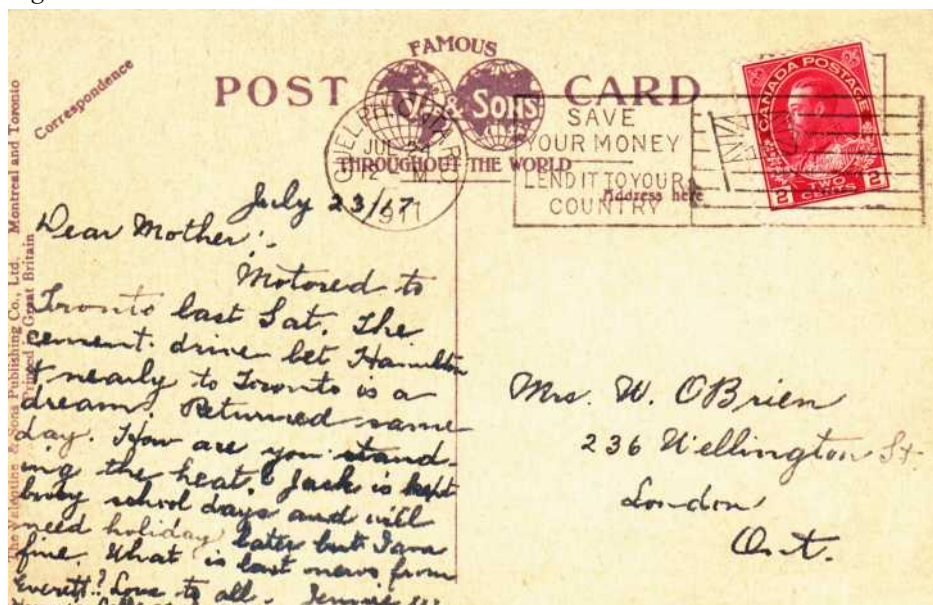 FAMOUS
POST CARD
V. & SONS
THROUGHOUT THE WORLD
Correspondence
Address here
The Valentine & Sons Publishing Co., Ltd. Montreal and Toronto
Printed in Great Britain
GUELPH ONT.
JUL 24
12 M
1917
SAVE
YOUR MONEY
LEND IT TO YOUR
COUNTRY
CANADA POSTAGE
2 TWO CENTS 2
July 23/17
Dear Mother:
Motored to
Toronto last Sat. The
cement drive bet Hamilton
& nearly to Toronto is a
dream. Returned same
day. How are you stand-
ing the heat? Jack is kept
busy school days and will
need holiday later but I am
fine. What is last news from
Everett? Love to all. Jennie
Mrs. W. OBrien
236 Wellington St.
London
Ont.